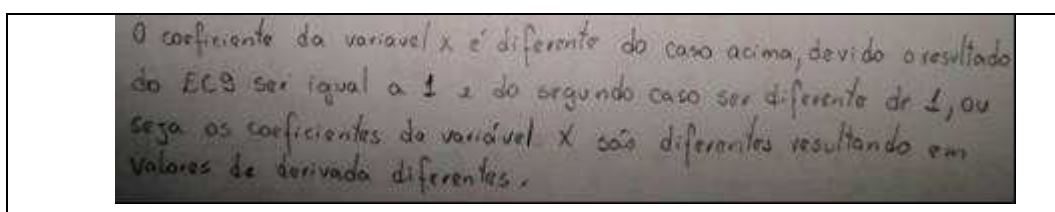 O coeficiente da variavel x é diferente do caso acima, devido o resultado
do EC9 ser igual a 1 e do segundo caso ser diferente de 1, ou
seja os coeficientes da variável X são diferentes resultando em
valores de derivada diferentes.